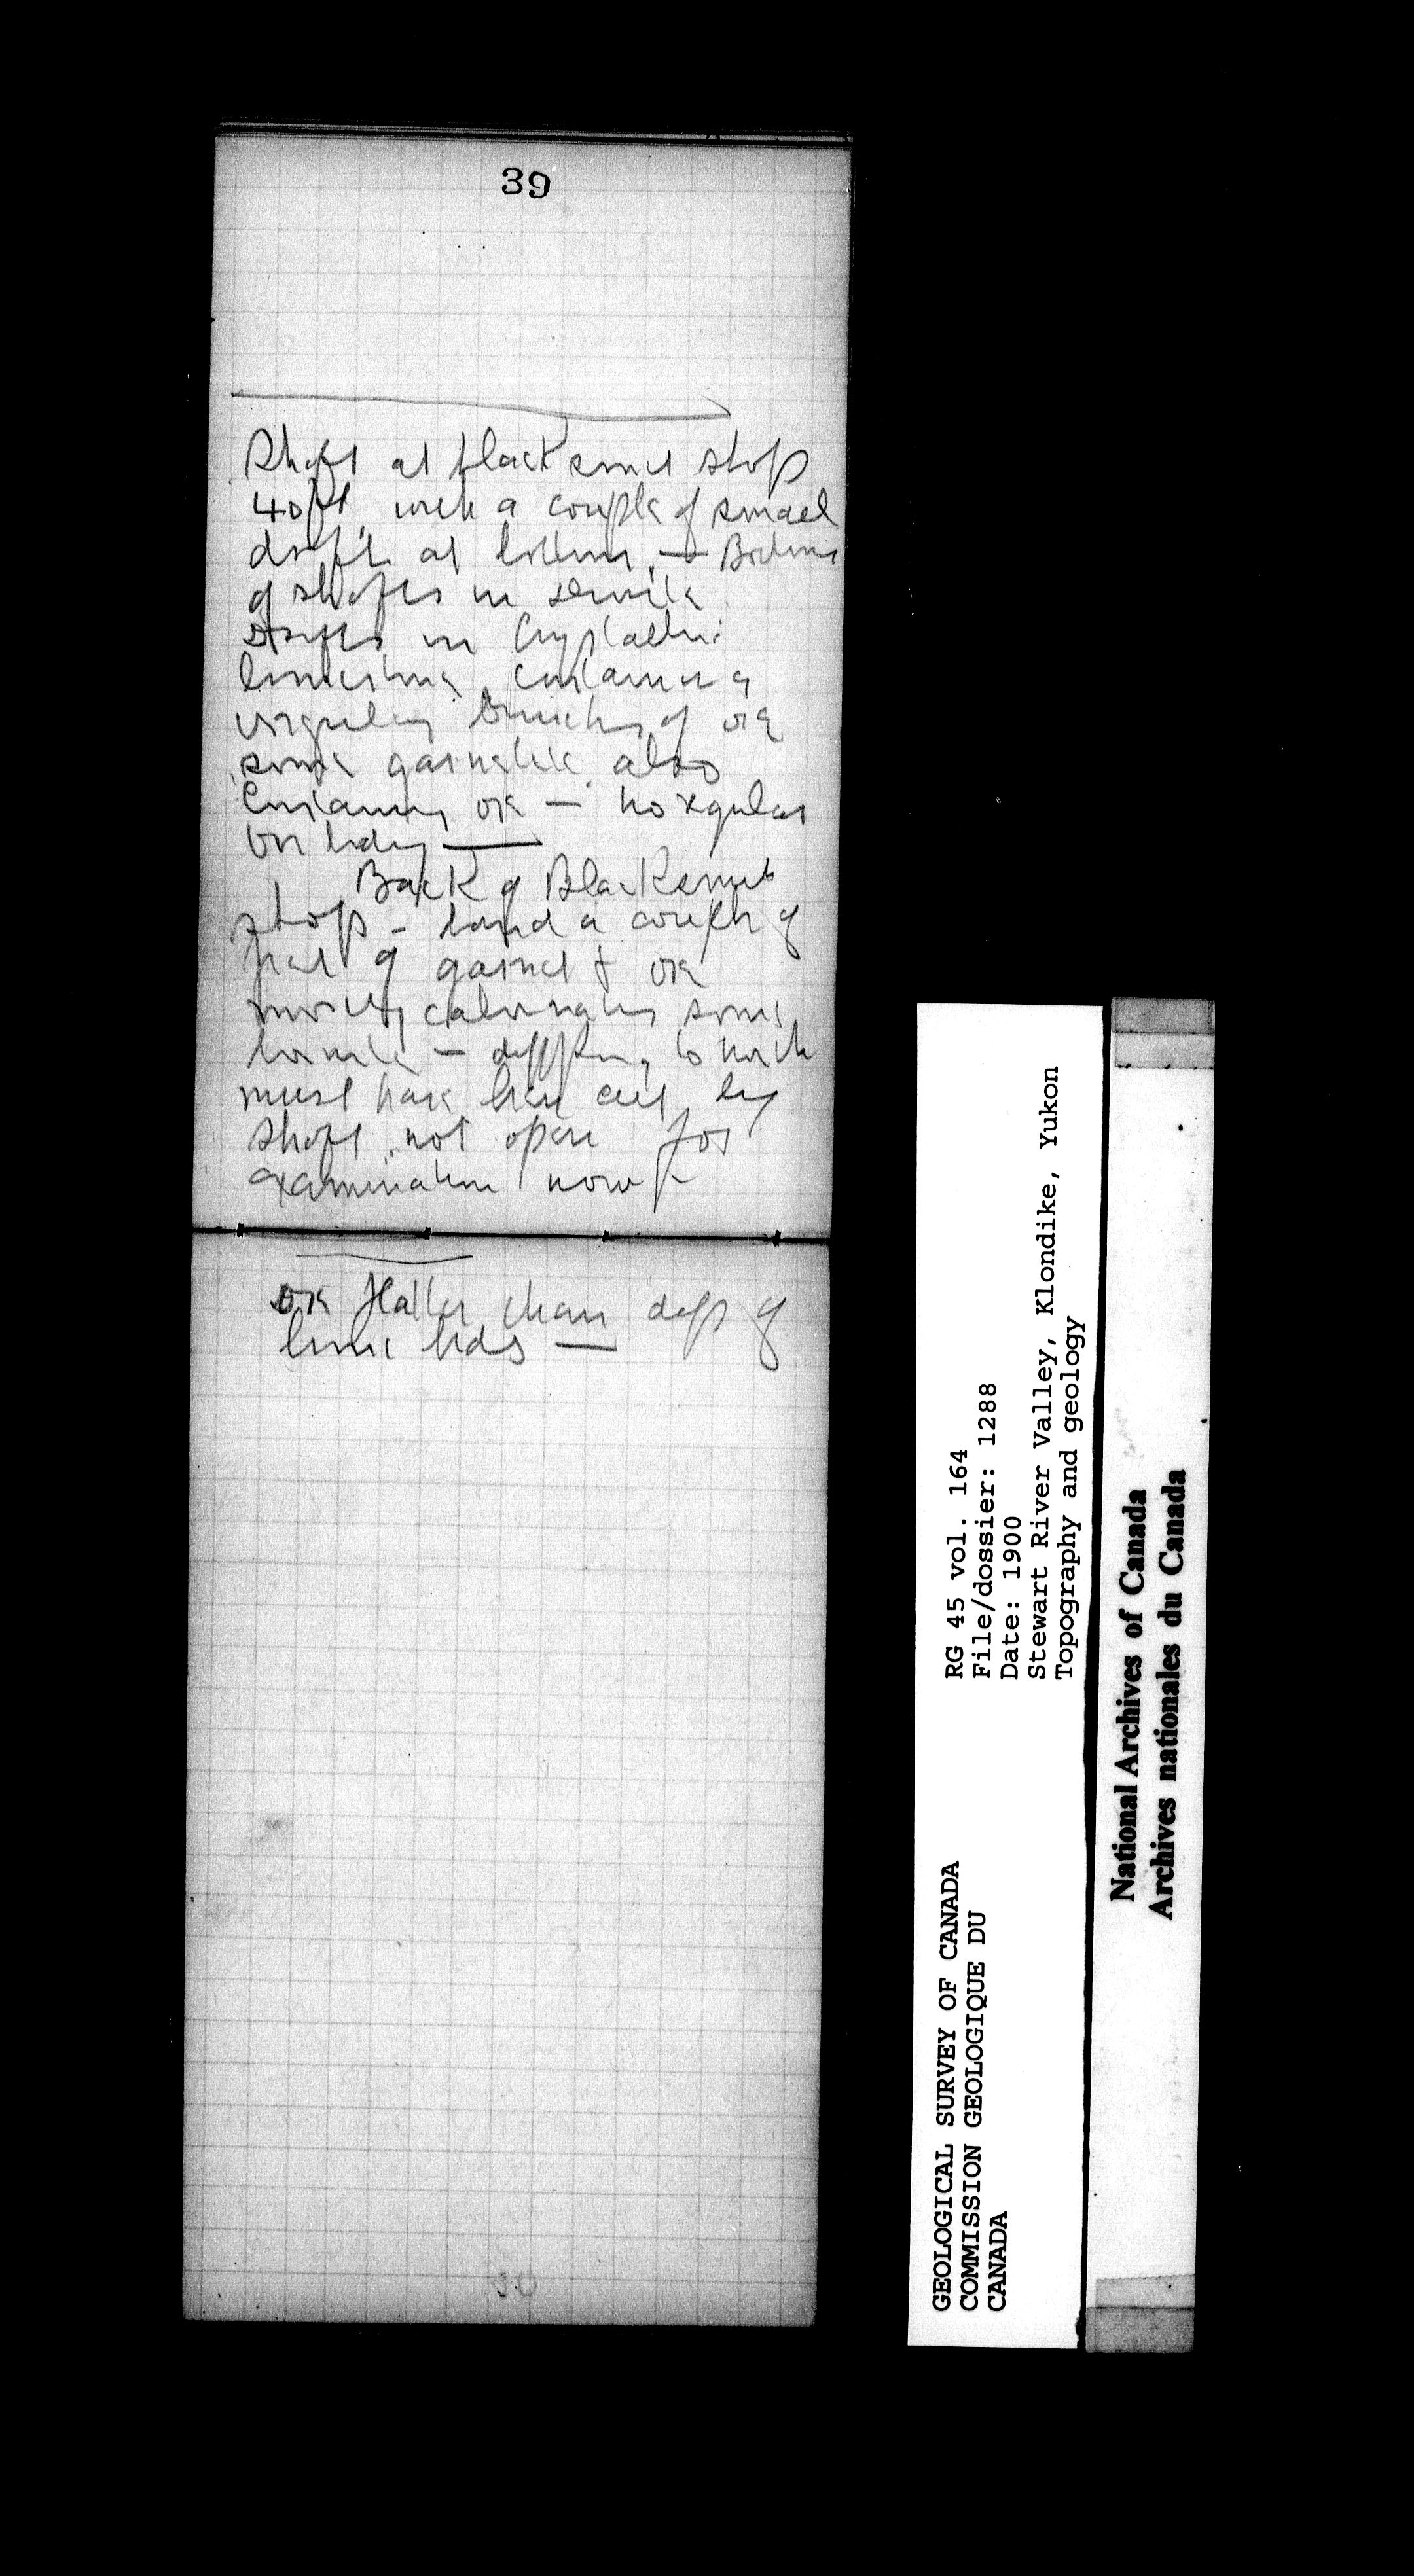 39
Shaft at blacksmit shop
40 ft. with a couple of small
drifts at bottom. — Bottom
of shafts in
Drifts in Crystalline
limestone containing
irregular bunches of ore
some garnetite also
containing ore — no regular
ore body —
Back of Blacksmit
shop - band a couple of
feet of garnet & ore
mostly some
bornite — dipping to north
must have been cut by
shaft, not open for
examination now —
ore flatter than dip of
lime beds —
RG 45 vol. 164
File/dossier: 1288
Date: 1900
Stewart River Valley, Klondike, Yukon
Topography and geology
GEOLOGICAL SURVEY OF CANADA
COMMISSION GEOLOGIQUE DU
CANADA
National Archives of Canada
Archives nationales du Canada